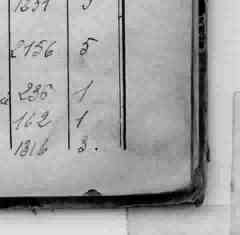 2156 5
235 1
162 1
1316 3.